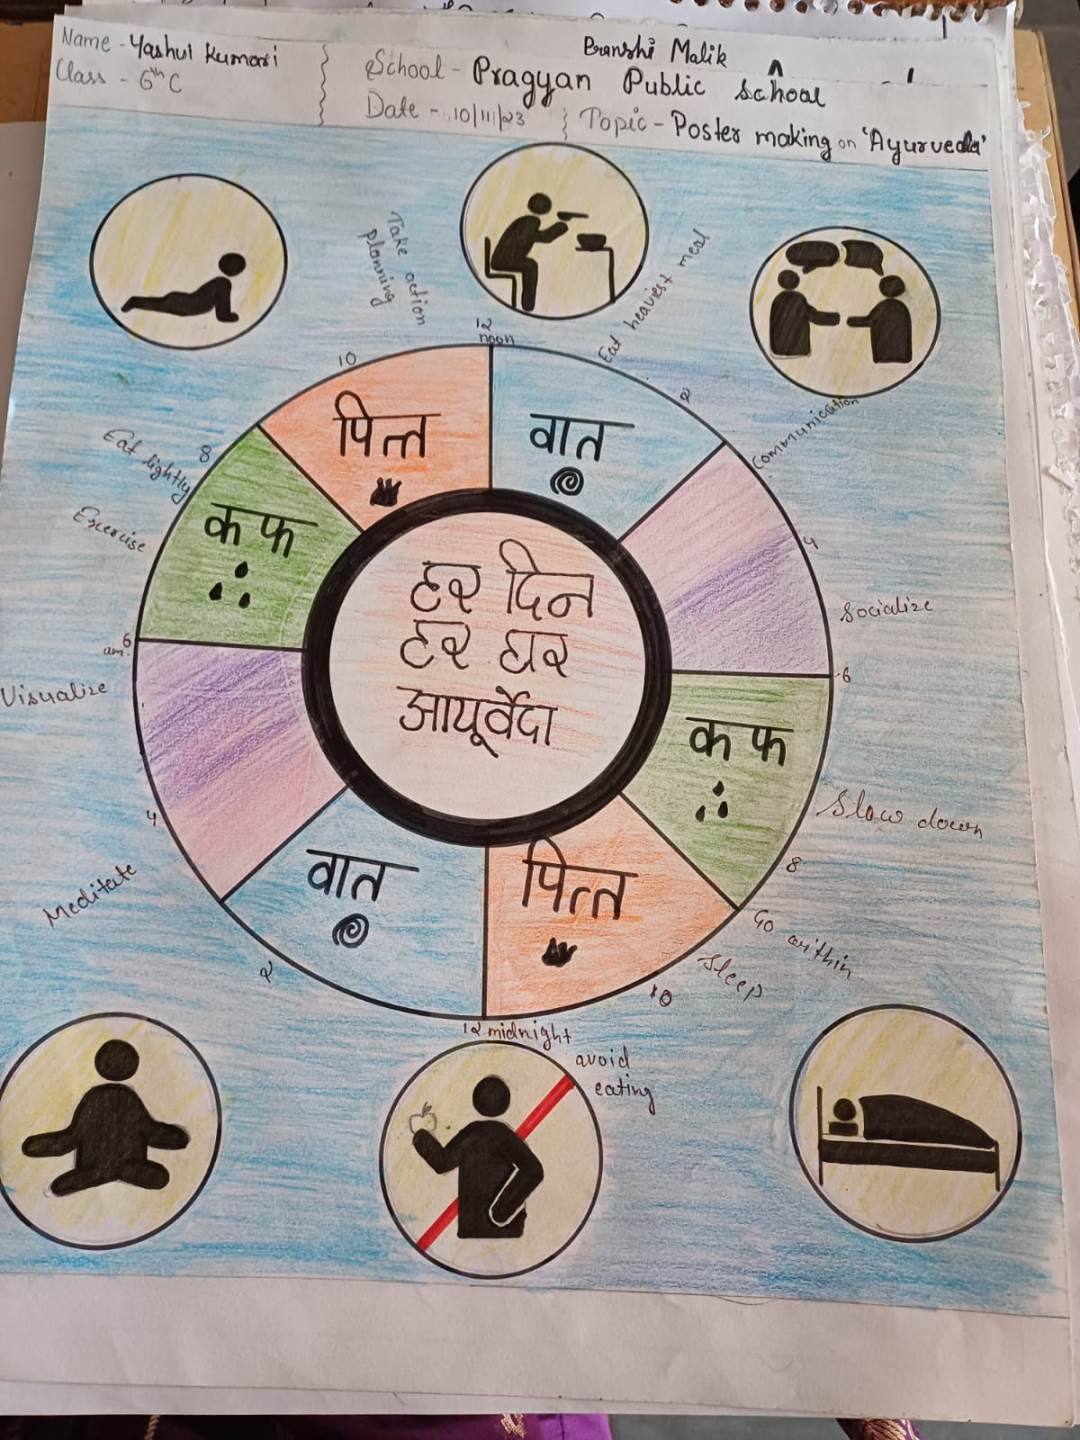 Pranshi Malik
Name - Yashul Kumari
Class - 6th C
School - Pragyan Public School
Date - 10/11/23
Topic - Poster making on 'Ayurveda'
Take action
planning
12
noon
Eat heaviest meal
10
2
पित्त
वात
Communication
8
Eat lightly
Exercise
कफ
4
Socialize
हर दिन
हर घर
आयूर्वेदा
6
am
6
Visualize
कफ
Slow down
4
8
Meditate
वात
पित्त
Go within
Sleep
2
10
12 midnight
avoid
eating